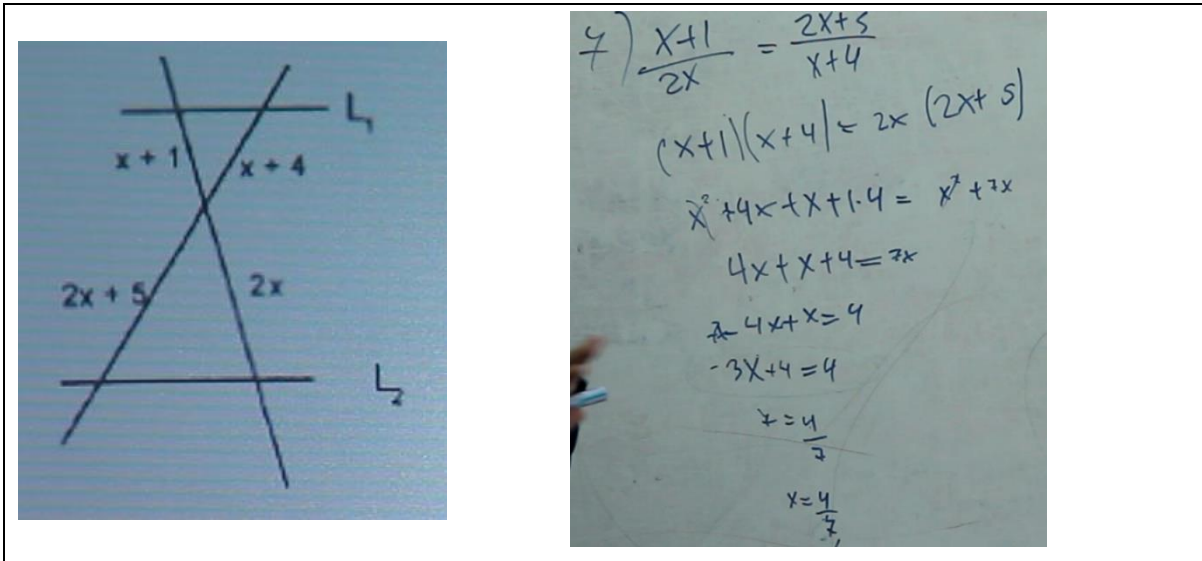 L₁
x + 1
x + 4
2x + 5
2x
L₂
7) (x+1)/(2x) = (2x+5)/(x+4)
(x+1)(x+4) = 2x (2x+5)
x² +4x+x+1·4 = x² +7x
4x+x+4=7x
4x+x=4
-3x+4=4
7=4/7
x=4/7